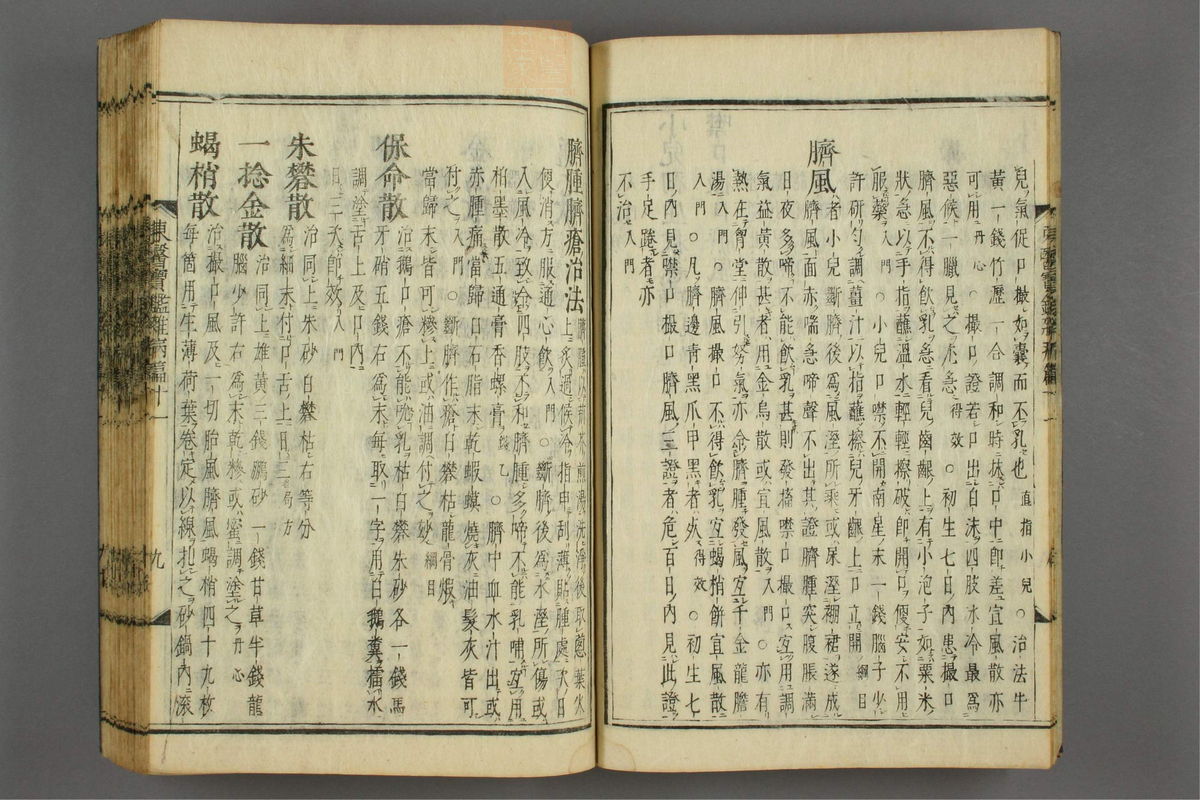 兒氣促口撮如囊而不乳也直指小兒○治法牛
黃一錢竹瀝一合調和時抹口中卽差宜風散亦
可用丹心○撮口證若口出白沫四肢水冷最爲
惡候一臘見之尤急得效○初生七日內患撮口
臍風不得飮乳急看兒齒齦上有小泡子如粟米
狀急以手指蘸溫水輕輕擦破卽開口便安不用
服藥入門○小兒口噤不開南星末一錢腦子少
許硏勻調薑汁以指蘸擦兒牙齦上口立開綱目
臍風
者小兒斷臍後爲風溼所乘或尿溼褓裙遂成
臍風面赤喘急啼聲不出其證臍腫突腹脹滿
日夜多啼不能飮乳甚則發搐噤口撮口宜用調
氣益黃散甚者用金烏散或宜風散入門○亦有
熱在胃堂伸引努氣亦令臍腫發風宜千金龍膽
湯入門○臍風撮口不得飮乳宜蝎梢餠宜風散
入門○凡臍邊靑黑爪甲黑者死得效○初生七
日內見噤口撮口臍風三證者危百日內見此證
手足踡者亦
不治入門
臍腫臍瘡治法
便消方服通心飮入門○斷臍後爲水溼所傷或
入風冷致令四肢不和臍腫多啼不能乳哺宜用
柏墨散五通膏香螺膏錢乙○臍中血水汁出或
赤腫痛當歸白石脂末乾蝦蟆燒灰油髮灰皆可
付之入門○斷臍作瘡白礬枯龍骨煆
當歸末皆可糝上或油調付之妙綱目
保命散
治鵝口瘡不能吮乳枯白礬朱砂各一錢馬
牙硝五錢右爲末每取一字用白鵝糞擂水
調塗舌上及口內
日三次卽效入門
朱礬散
治同上朱砂白礬枯右等分
爲細末付口舌上日三局方
一捻金散
治同上雄黃三錢鵬砂一錢甘草半錢龍
腦少許右爲末乾糝或蜜調塗之丹心
蝎梢散
治撮口風及一切胎風臍風蝎梢四十九枚
每箇用生薄荷葉卷定以線扎之砂鍋內滾
東醫寶鑑雜病篇十一
九